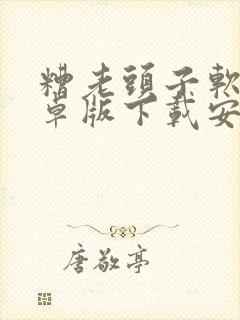 糟老頭子軟
卓版下載安
唐敬亭